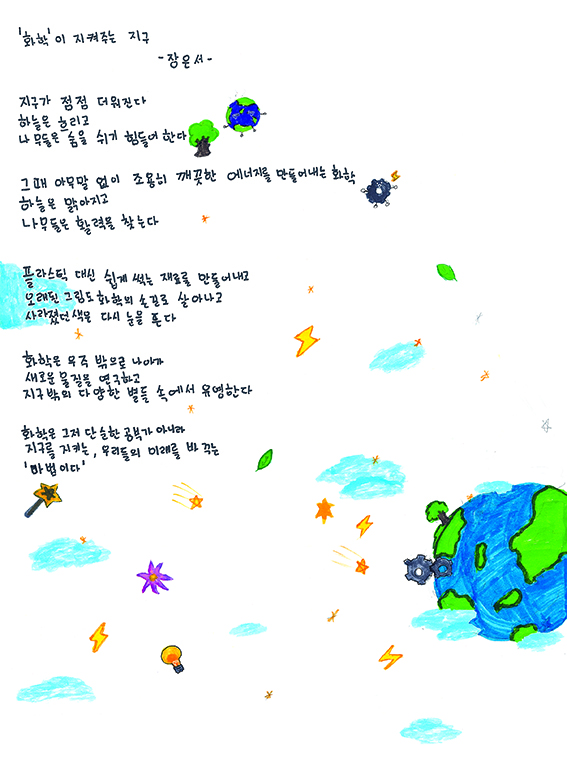 '화학'이 지켜주는 지구
-장은서-
지구가 점점 더워진다
하늘은 흐리고
나무들은 숨을 쉬기 힘들어한다
그때 아무말 없이 조용히 깨끗한 에너지를 만들어내는 화학
하늘은 맑아지고
나무들은 활력을 찾는다
플라스틱 대신 쉽게 썩는 재료를 만들어내고
오래된 그림도 화학의 손길로 살아나고
사라졌던색을 다시 눈을 뜬다
화학은 우주 밖으로 나아가
새로운 물질을 연구하고
지구밖의 다양한 별들 속에서 유영한다
화학은 그저 단순한 공부가 아니라
지구를 지키는, 우리들의 미래를 바꾸는
'마법이다'